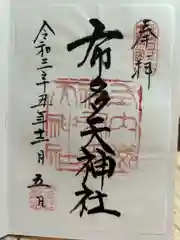 奉拝
布多天神社
令和三辛丑年十二月五日